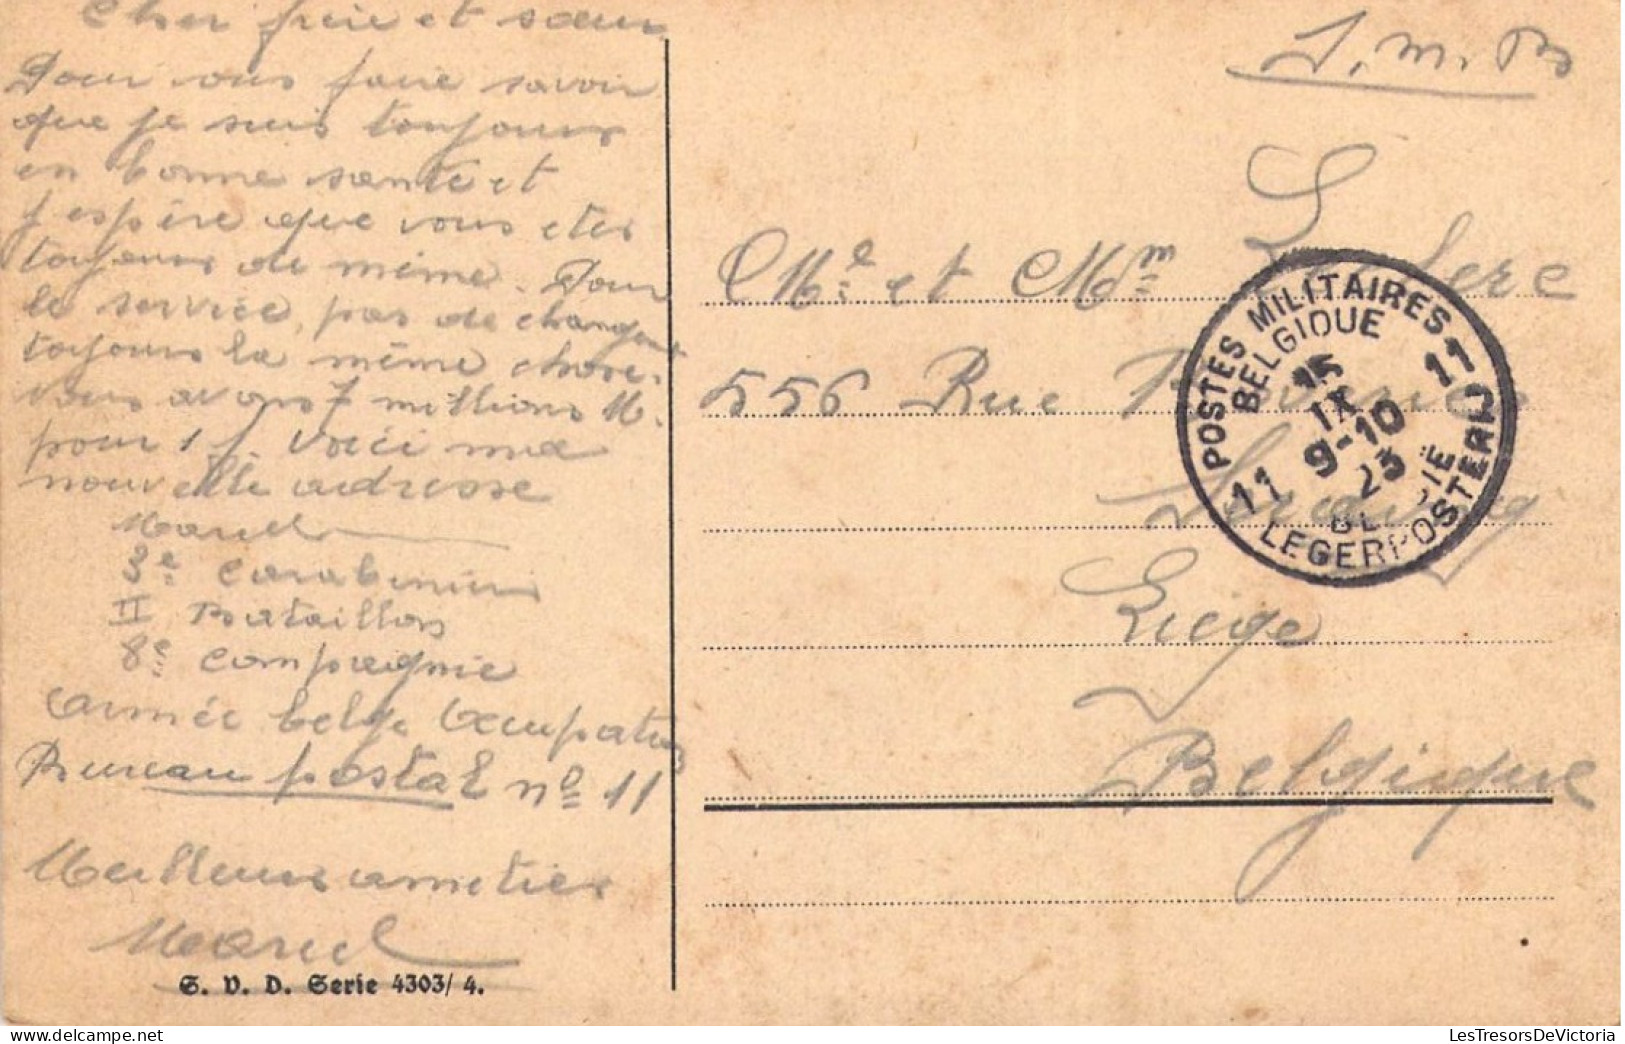 Cher frère et sœur
Pour vous faire savoir
que je suis toujours
en bonne santé et
j'espère que vous etes
toujours de même. Pour
le service, pas de changent
toujours la même chose.
Vous avons 7 millions M.
pour 1 f. Voici ma
nouvelle adresse
Marcel
3e Carabiniers
II Bataillon
8e compagnie
armée belge Occupation
Bureau postal no 11
Meilleurs amitiés
Marcel
S. V. D. Serie 4303/ 4.
S. M. B
Mr et Mme
556 Rue
Seraing
Liège
Belgique
POSTES MILITAIRES
BELGIQUE
11
15
IX
9-10
23
11
LEGERPOSTERIJ
delcampe.net
LesTresorsDeVictoria